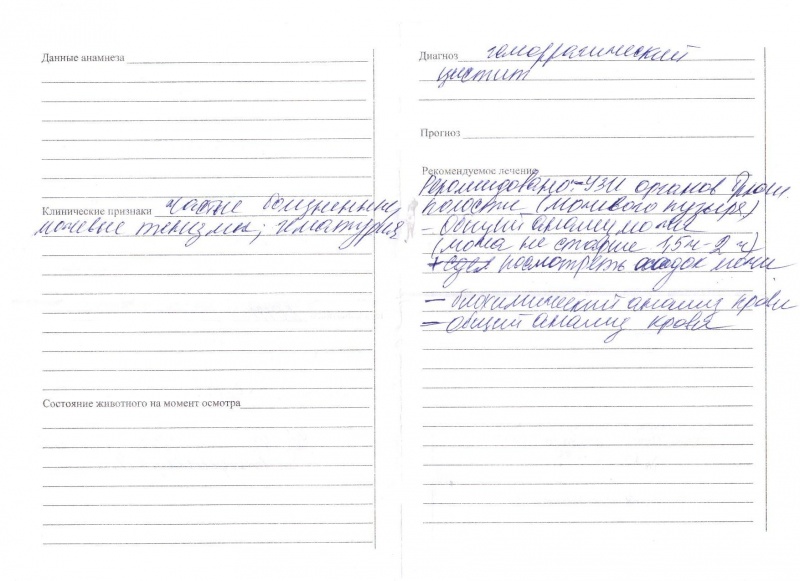 Данные анамнеза
Клинические признаки частые болезненные
мочевые тенезмы; гематурия
Состояние животного на момент осмотра
Диагноз геморрагический
цистит
Прогноз
Рекомендуемое лечение
Рекомендовано: - УЗИ органов брюш.
полости (мочевого пузыря)
- Общий анализ мочи
(моча не старше 1,5ч-2ч)
+ посмотреть осадок мочи
- биохимический анализ крови
- общий анализ крови